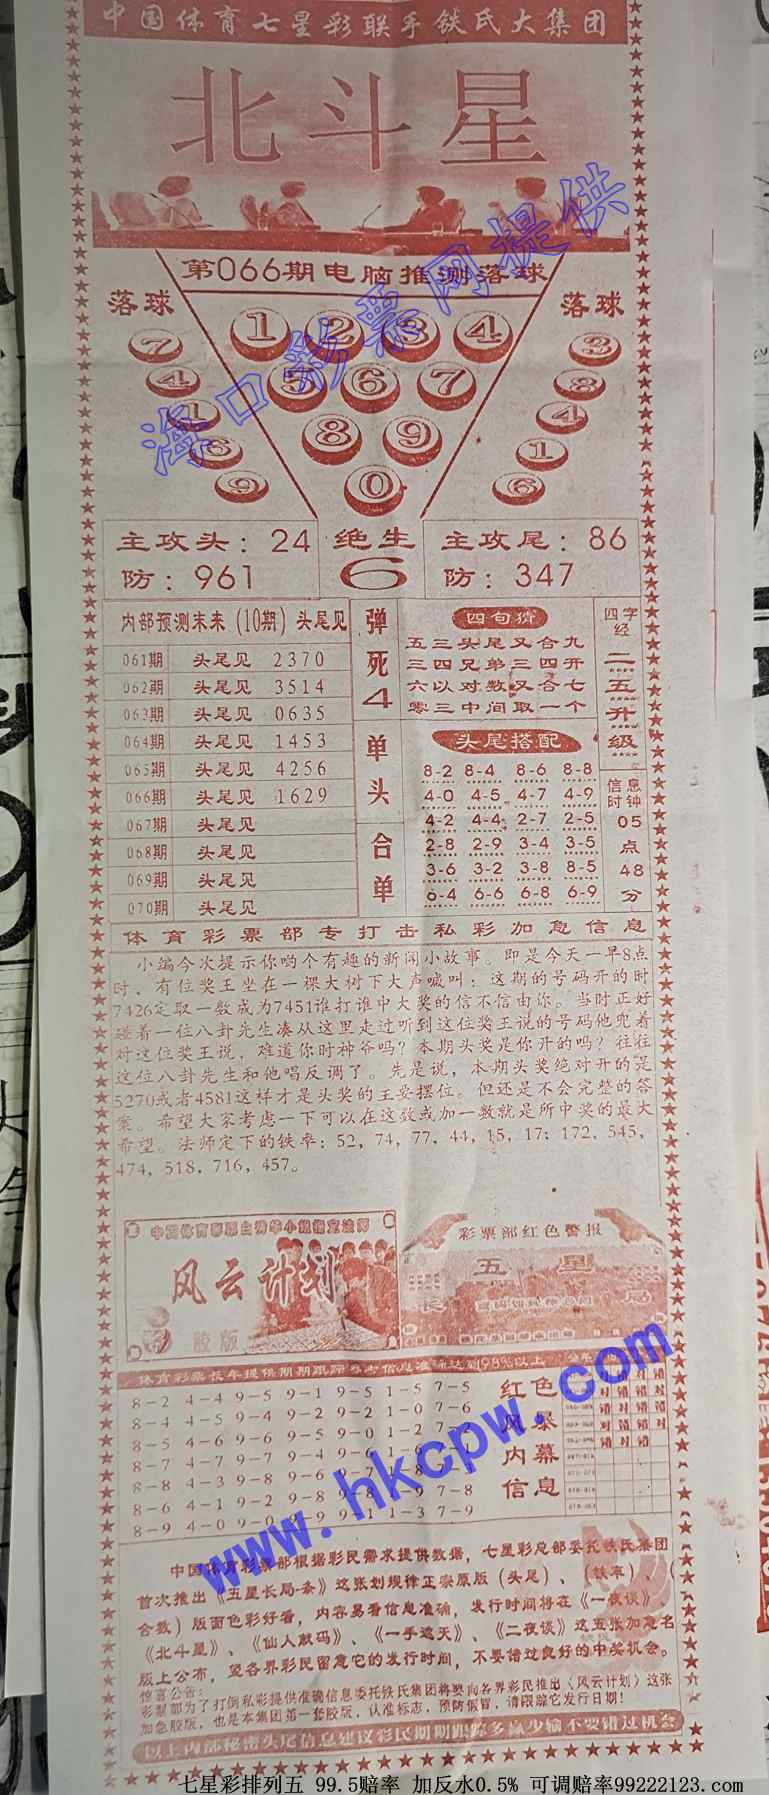 中国体育七星彩联手铁氏大集团
北斗星
第066期电脑推测落球
落球
7
4
1
6
9
1 2 3 4
5 6 7
8 9
0
落球
3
8
4
1
6
主攻头：24
防：961
绝生
6
主攻尾：86
防：347
内部预测末来（10期）头尾见
061期 头尾见 2370
062期 头尾见 3514
063期 头尾见 0635
064期 头尾见 1453
065期 头尾见 4256
066期 头尾见 1629
067期 头尾见
068期 头尾见
069期 头尾见
070期 头尾见
弹死4
单头
合单
四句猜
五三头尾又合九
三四兄弟三四开
六以对数又合七
零三中间取一个
头尾搭配
8-2 8-4 8-6 8-8
4-0 4-5 4-7 4-9
4-2 4-4 2-7 2-5
2-8 2-9 3-4 3-5
3-6 3-2 3-8 8-5
6-4 6-6 6-8 6-9
四字经
二五升级
信息时钟
05
点
48
分
体育彩票部专打击私彩加急信息
小编今次提示你哟个有趣的新闻小故事。即是今天一早8点
时、有位奖王坐在一棵大树下大声喊叫：这期的号码开的时
7426定取一数成为7451谁打谁中大奖的信不信由你。当时正好
碰着一位八卦先生凑从这里走过听到这位奖王说的号码他兜着
对这位奖王说，难道你时神爷吗？本期头奖是你开的吗？往往
这位八卦先生和他唱反调了。先是说，本期头奖绝对开的是
5270或者4581这样才是头奖的主要摆位。但还是不会完整的答
案。希望大家考虑一下可以在这数或加一数就是所中奖的最大
希望。法师定下的铁率：52，74，77，44，15，17；172，545，
474，518，716，457。
风云计划
胶版
彩票部红色警报
五星
长
局
体育彩票长年提供期期跟踪
信息准确达到98%以上
8-2 4-4 9-5 9-1 9-5 1-5 7-5
8-4 4-5 9-4 9-2 9-2 1-0 7-6
8-5 4-6 9-6 9-5 9-0 1-2
8-7 4-7 9-7 9-4 9-6 1-6
8-8 4-3 9-8 9-6 9-7
8-6 4-1 9-2 9-8 9-8 7-8
8-9 4-0 9-0 9-9 9-1 1-3 7-9
红色
风暴
内幕
信息
中国体育彩票部根据彩民需求提供数据，七星彩总部委托铁氏集团
首次推出《五星长局-条》这张划规律正宗原版（头尾）、（铁率）、
合数）版面色彩好看，内容易看信息准确，发行时间将在《一夜谈》
《北斗星》、《仙人献码》、《一手遮天》、《二夜谈》这五张加急名
版上公布，望各界彩民留意它的发行时间，不要错过良好的中奖机会。
惊喜公告：
彩票部为了打倒私彩提供准确信息委托铁氏集团将要向各界彩民推出《风云计划》这张
加急胶版，也是本集团第一套胶版，认准标志，预防假冒，请跟踪它发行日期！
以上内部秘密头尾信息建议彩民期期跟踪多赢少输不要错过机会
海口彩票网提供
www.hkcpw.com
七星彩排列五 99.5赔率 加反水0.5% 可调赔率99222123.com